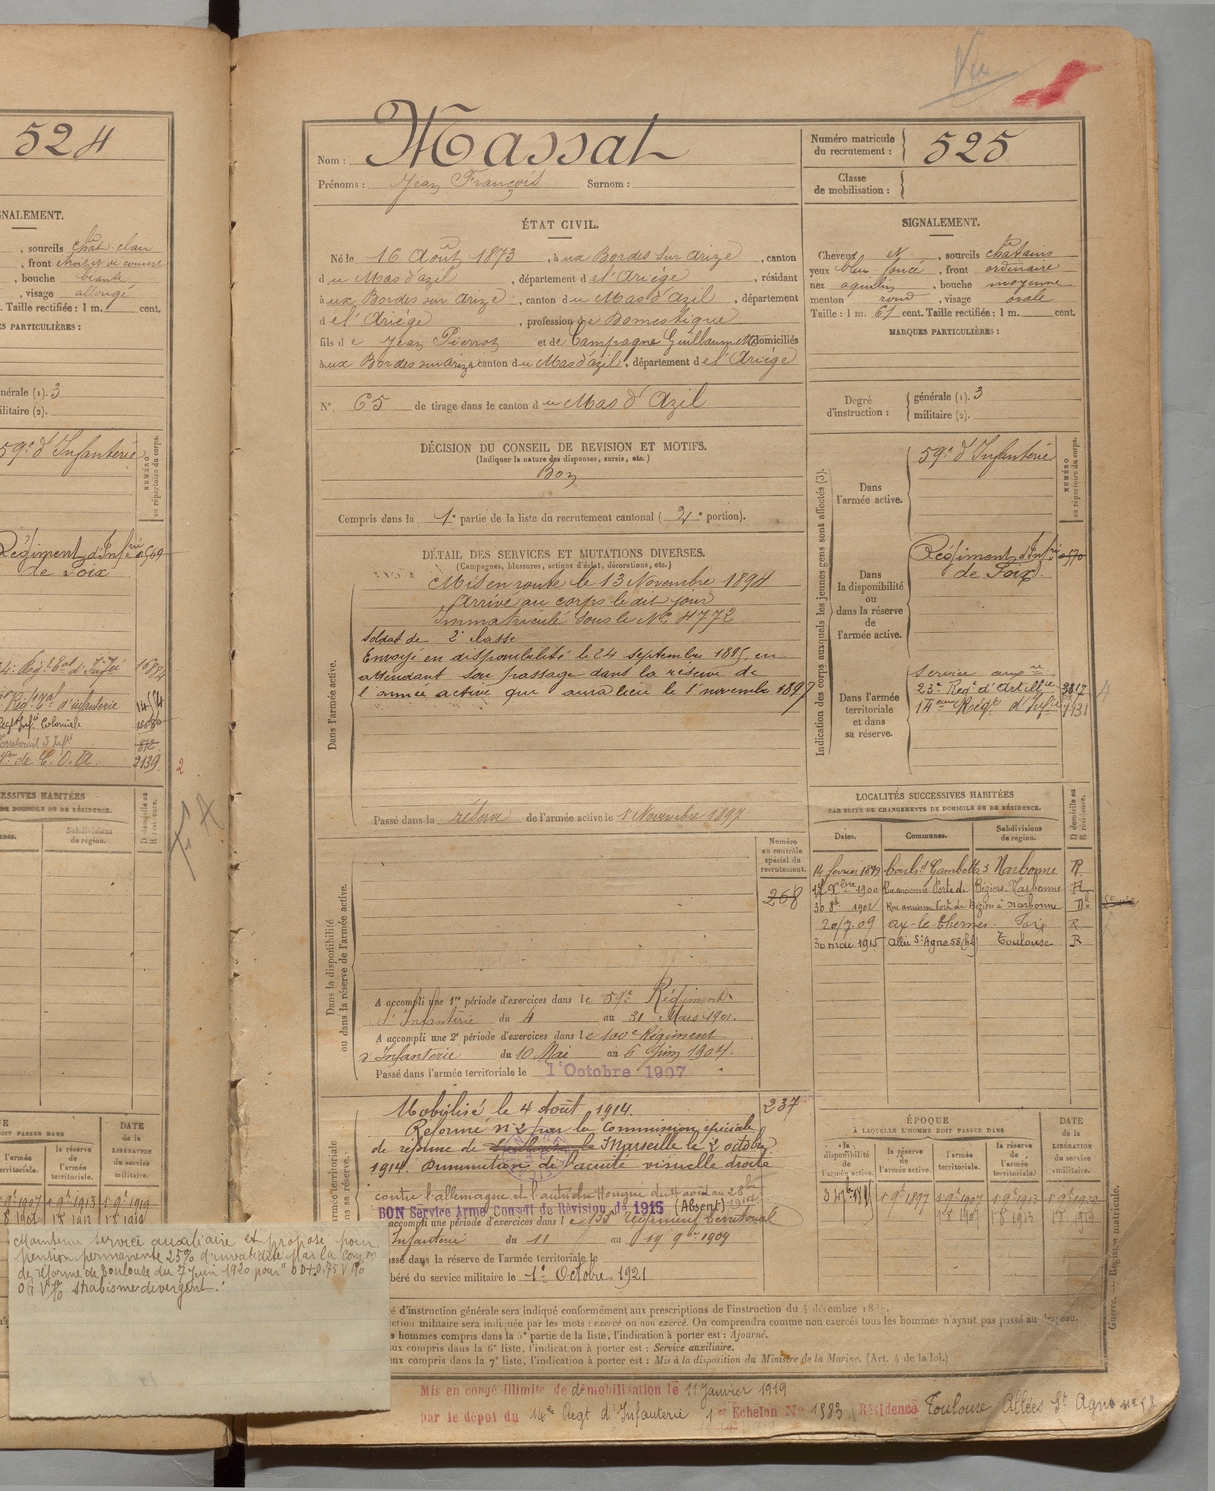 524
GNALEMENT.
, sourcils chat. clair
, front étroit et découvert
, bouche béante
, visage allongé
Taille rectifiée : 1 m. cent.
S PARTICULIÈRES :
nérale (1). 3
ilitaire (2).
59e d'Infanterie
NUMÉRO
au répertoire du corps.
Régiment d'Infrie 0569
de Foix
Territorial 3 Infie 872
2139
2
SSIVES HABITÉES
DE DOMICILE OU DE RÉSIDENCE.
Subdivisions
de région.
D domicile ou
R résidence.
DOIT PASSER DANS
l'armée
territoriale.
la réserve
de
l'armée
territoriale.
DATE
de la
LIBÉRATION
du service
militaire.
Vu
Nom : Massat
Prénoms : Jean François Surnom :
Numéro matricule
du recrutement : 525
Classe
de mobilisation :
ÉTAT CIVIL.
Né le 16 Août 1873, à ux Bordes sur Arize, canton
d u Mas d'azil, département d e l'Ariège, résidant
à ux Bordes sur Arize, canton d u Mas d'Azil, département
d e l'Ariège, profession de Domestique
fils d e Jean Pierre et de Campagne Guillaumette domiciliés
à ux Bordes sur Arize canton d u Mas d'azil, département d e l'Ariège
N° 65 de tirage dans le canton d u Mas d'Azil
SIGNALEMENT.
Cheveux et, sourcils châtains
yeux bleu foncé, front ordinaire
nez aquilin, bouche moyenne
menton rond, visage ovale
Taille : 1 m. 61 cent. Taille rectifiée : 1 m. cent.
MARQUES PARTICULIÈRES :
Degré
d'instruction :
générale (1). 3
militaire (2).
DÉCISION DU CONSEIL DE REVISION ET MOTIFS.
(Indiquer la nature des dispenses, sursis, etc.)
Bon
Compris dans la 1e partie de la liste du recrutement cantonal ( 2e portion).
DÉTAIL DES SERVICES ET MUTATIONS DIVERSES.
(Campagnes, blessures, actions d'éclat, décorations, etc.)
Dans l'armée active.
Mis en route le 13 Novembre 1894
Arrivé au corps le dit jour
Immatriculé sous le No 4772
Soldat de 2e classe
Envoyé en disponibilité le 24 septembre 1895 en
attendant son passage dans la réserve de
l'armée active qui aura lieu le 1er novembre 1897
Passé dans la réserve de l'armée active le 1er Novembre 1897
Indication des corps auxquels les jeunes gens sont affectés (3).
Dans
l'armée active.
59e d'Infanterie
NUMÉRO
au répertoire du corps.
Dans
la disponibilité
ou
dans la réserve
de
l'armée active.
Régiment d'Infrie 0570
de Foix
Dans l'armée
territoriale
et dans
sa réserve.
Service auxre
23e Régt d'Artillie 3817
14eme Régt d'Infie 7131
4
Dans la disponibilité
ou dans la réserve de l'armée active.
Numéro
au contrôle
spécial du
recrutement.
268
A accompli une 1re période d'exercices dans le 59e Régiment
d'Infanterie du 4 au 31 Mars 1901.
A accompli une 2e période d'exercices dans le 100e Régiment
d'Infanterie du 10 Mai au 6 Juin 1904.
Passé dans l'armée territoriale le 1er Octobre 1907
LOCALITÉS SUCCESSIVES HABITÉES
PAR SUITE DE CHANGEMENTS DE DOMICILE OU DE RÉSIDENCE.
Dates. Communes. Subdivisions
de région.
D domicile ou
R résidence.
14 février 1899 Boulvd Gambetta 3 Narbonne R
Xbre 1900 Rue ancienne Porte de Béziers Narbonne
30 8bre 1902 Rue ancienne Porte de Béziers à Narbonne D
20/7.09 ax-les-thermes Foix R
30 mai 1915 Allée St Agne 58 Toulouse R
237
Mobilisé le 4 Août 1914.
Réformé n° 2 par la Commission spéciale
de réforme de Marseille le 2 octobre
1914. Diminution de l'acuité visuelle droite
contre l'allemagne et l'autriche Hongrie du 4 août au 28
BON Service Armé Conseil de Révision de 1915 (Absent)
accompli une période d'exercices dans le 133e Régiment Territorial
Infanterie du 11 au 19 9bre 1909
assé dans la réserve de l'armée territoriale le
béré du service militaire le 1er Octobre 1921
ÉPOQUE
À LAQUELLE L'HOMME DOIT PASSER DANS
la
disponibilité
de
l'armée active.
la réserve
de
l'armée active.
l'armée
territoriale.
la réserve
de
l'armée
territoriale.
DATE
de la
LIBÉRATION
du service
militaire.
Maintenu service auxiliaire et proposé pour
pension permanente 25% d'invalidité par la Comon
de réforme de Toulouse du 7 Juin 1920 pour
strabisme divergent.
é d'instruction générale sera indiqué conformément aux prescriptions de l'instruction du 4 décembre 1889.
ction militaire sera indiquée par les mots : exercé ou non exercé. On comprendra comme non exercés tous les hommes n'ayant pas passé au drapeau.
s hommes compris dans la 5e partie de la liste, l'indication à porter est : Ajourné.
ux compris dans la 6e liste, l'indication à porter est : Service auxiliaire.
ux compris dans la 7e liste, l'indication à porter est : Mis à la disposition du Ministre de la Marine. (Art. 4 de la loi.)
Guerre. — Registre matricule.
Mis en congé illimité de démobilisation le 11 Janvier 1919
par le dépôt du 14e Regt d'Infanterie 1er Echelon N° 1883 Résidence Toulouse Allées St Agne n° 58